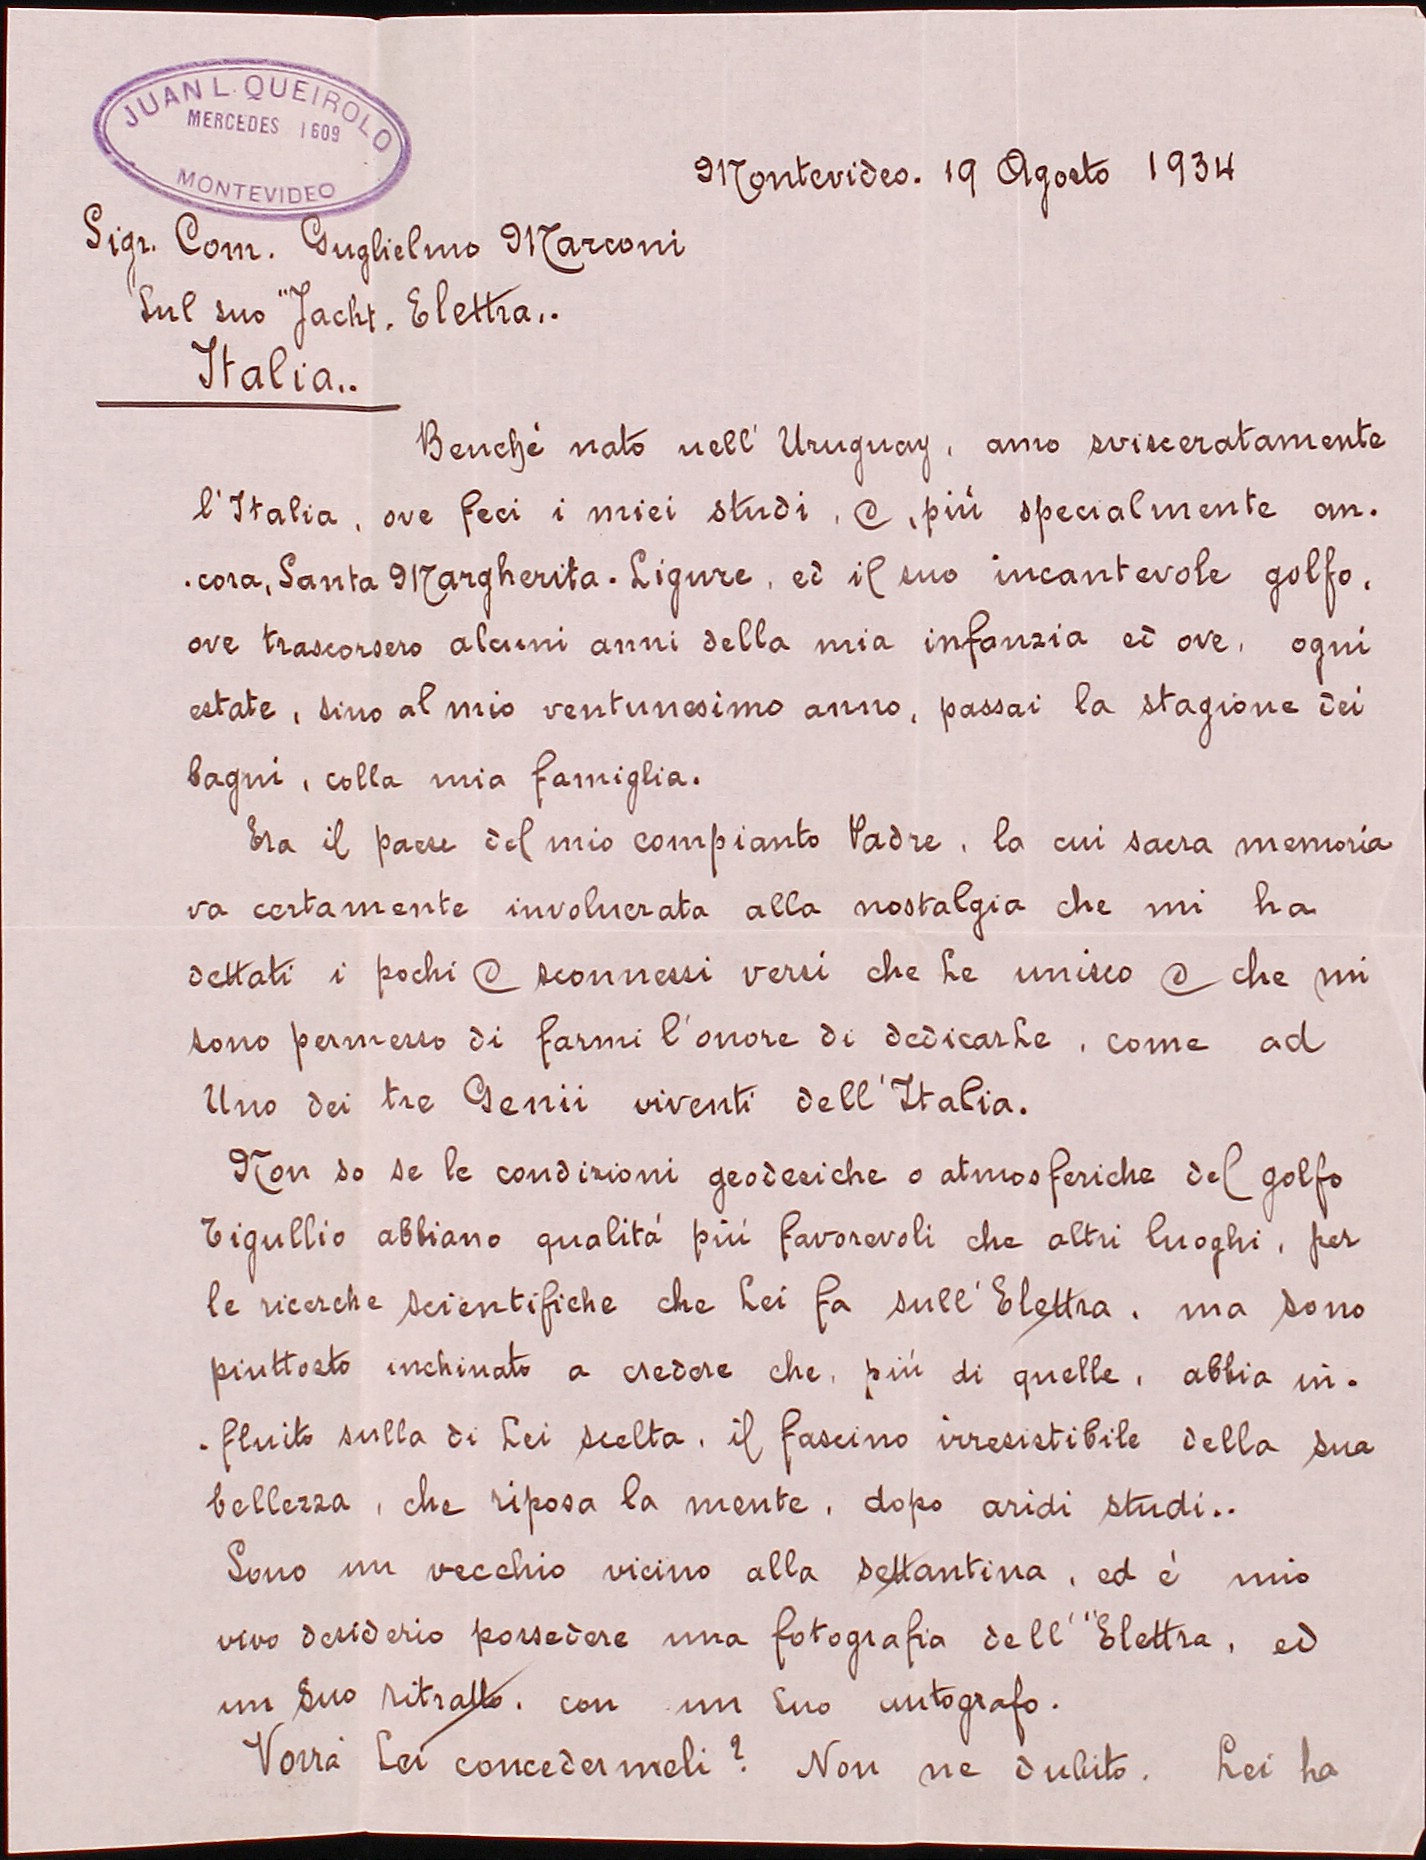 JUAN L. QUEIROLO
MERCEDES 1609
MONTEVIDEO
Montevideo. 19 Agosto 1934
Sigr. Com. Guglielmo Marconi
Sul suo "Jacht. Elettra..
Italia..
Benché nato nell' Uruguay, amo svisceratamente
l'Italia, ove feci i miei studi, e, piú specialmente an.
.cora, Santa Margherita. Ligure, ed il suo incantevole golfo,
ove trascorsero alcuni anni della mia infanzia ed ove, ogni
estate, sino al mio ventunesimo anno, passai la stagione dei
bagni, colla mia famiglia.
Era il paese del mio compianto Padre, la cui sacra memoria
va certamente involucrata alla nostalgia che mi ha
dettati i pochi e sconnessi versi che Le unisco e che mi
sono permesso di farmi l'onore di dedicarLe, come ad
Uno dei tre Genii viventi dell'Italia.
Non so se le condizioni geodesiche o atmosferiche del golfo
Tigullio abbiano qualitá piú favorevoli che altri luoghi, per
le ricerche scientifiche che Lei fa sull'Elettra, ma sono
piuttosto inchinato a credere che, piú di quelle, abbia in.
.fluito sulla di Lei scelta, il fascino irresistibile della sua
bellezza, che riposa la mente, dopo aridi studi..
Sono un vecchio vicino alla settantina, ed é mio
vivo desiderio possedere una fotografia dell'"Elettra, ed
un Suo ritratto, con un Suo autografo.
Vorrá Lei concedermeli? Non ne dubito. Lei ha